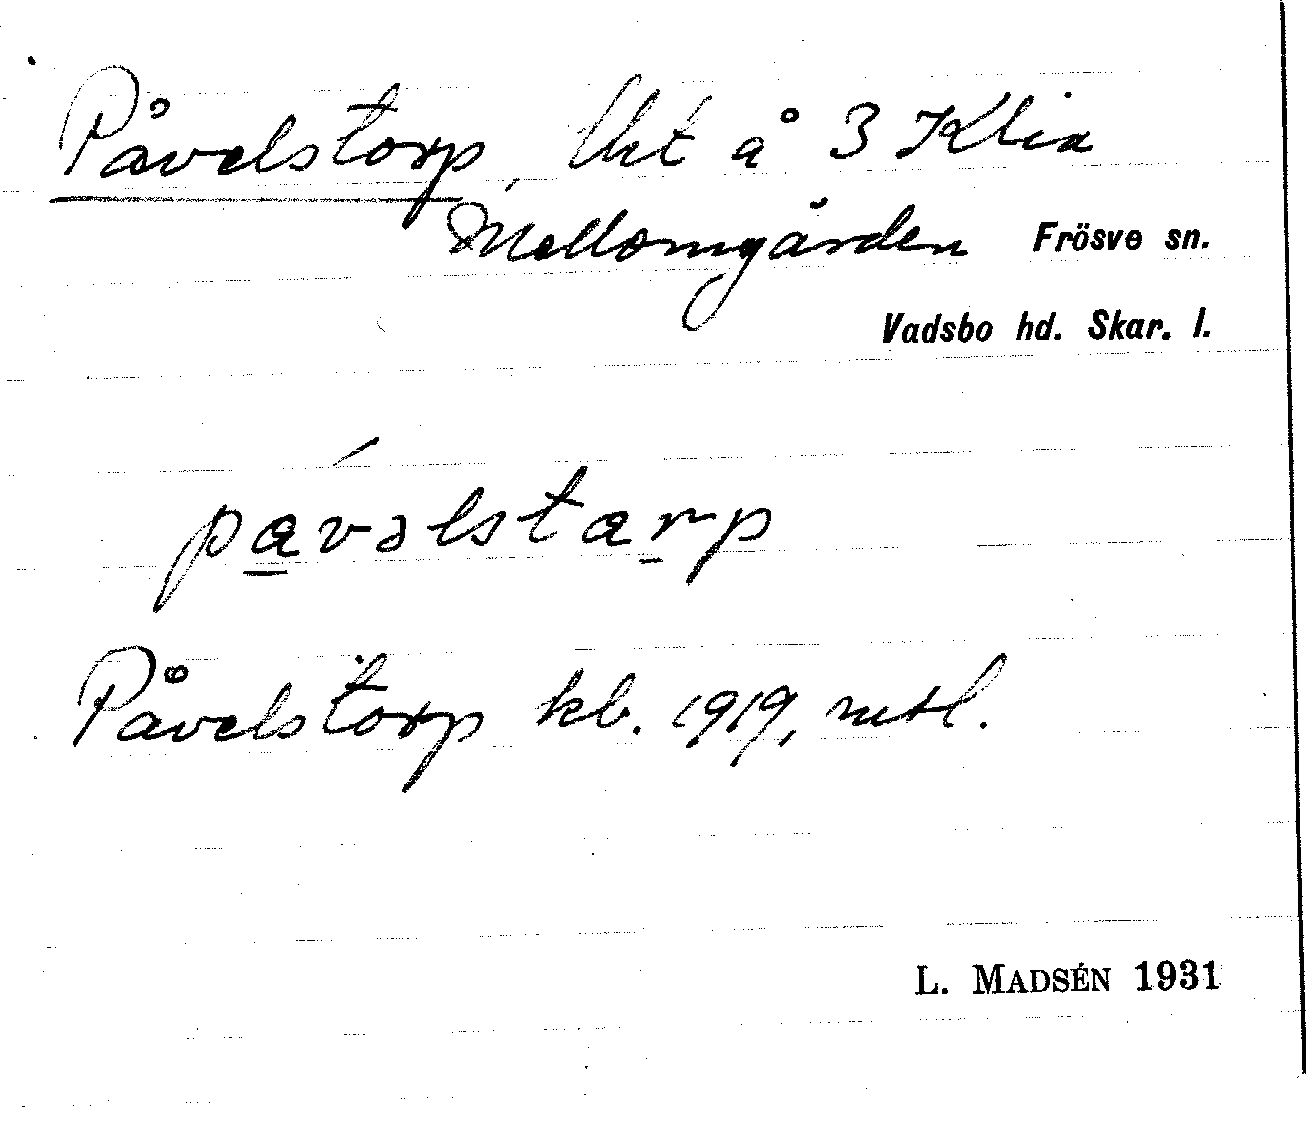 Påvelstorp, lht å 3 Klia
Mellomgården Frösve sn.
Vadsbo hd. Skar. l.
pavəlstarp
Påvelstorp kb. 1919, mtl.
L. MADSÉN 1931